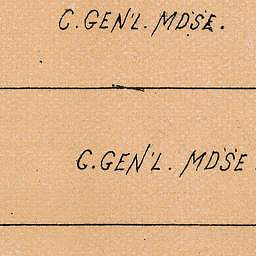 C.GEN'L. MDSE.
C.GEN'L. MDSE.